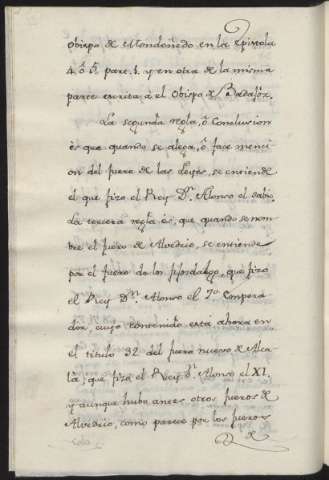 obispo de Mondoñedo en la Epistola
4. ó 5. parte. 1. y en otra de la misma
parte escrita á el Obispo de Badajóz.
La segunda regla, ó Conclusion
és que quando se alega, ó face menci
on del fuero de las Leyes, se entiende
el que fizo el Rey Dn. Alonso el Sabio.
La tercera regla és, que quando se nom
bre el fuero de Alvedrio, se entiende
por el fuero de los fijosdalgo, que fizo
el Rey Dn. Alonso el 7o Empera
dor, cuyo contenido está ahora en
el titulo 32 del fuero nuevo de Alca
lá, que fizo el Rey Dn. Alonso el XI,
y aunque hubo antes otros fueros de
Alvedrio, como parece por los fueros
de